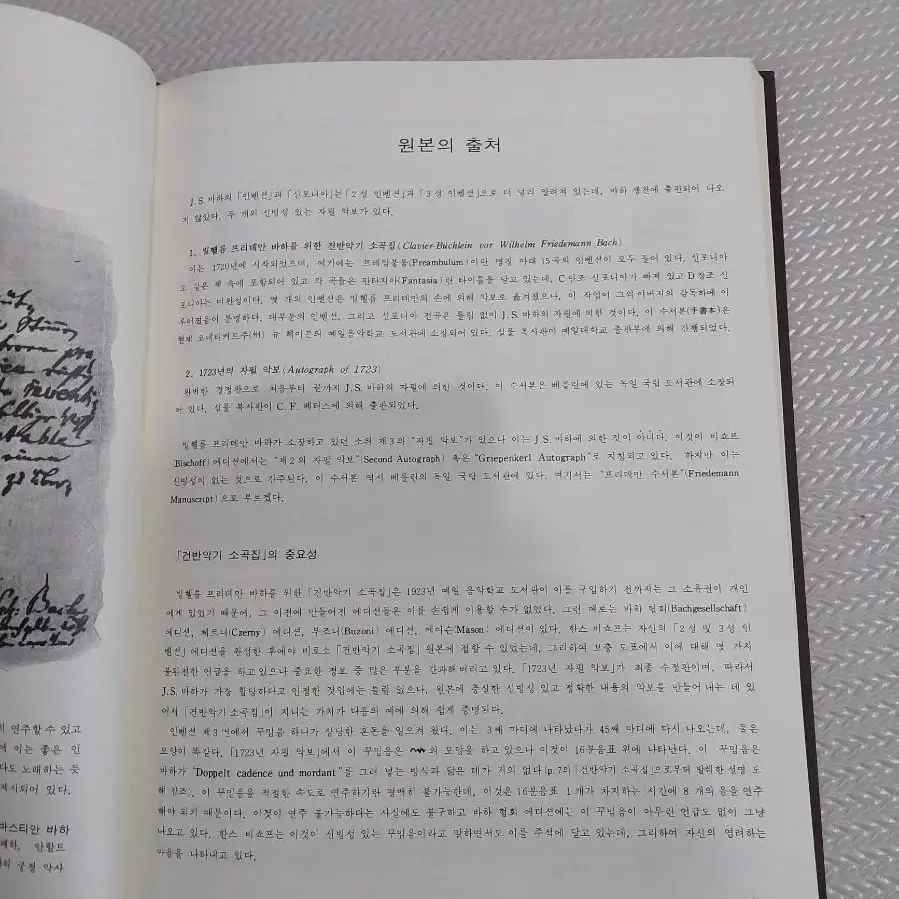 연주할 수 있고
에 이는 좋은 인
다도 노래하는 듯
제시되어 있다.
바스티안 바하
안할트
의 궁정 악사
원본의 출처
J.S.바하의 「인벤션」과 「신포니아」는 「2성 인벤션」과 「3성 인벤션」으로 더 널리 알려져 있는데, 바하 생전에 출판되어 나오
지 않았다. 두 개의 신빙성 있는 자필 악보가 있다.
1. 빌헬름 프리데만 바하를 위한 건반악기 소곡집(Clavier-Büchlein vor Wilhelm Friedemann Bach)
이는 1720년에 시작되었으며, 여기에는 프레암블룸(Preambulum)이란 명칭 아래 15곡의 인벤션이 모두 들어 있다. 신포니아
도 같은 책 속에 포함되어 있고 각 곡들은 판타지아(Fantasia)란 타이틀을 달고 있는데, C단조 신포니아가 빠져 있고 D장조 신
포니아는 미완성이다. 몇 개의 인벤션은 빌헬름 프리데만의 손에 의해 악보로 옮겨졌으나, 이 작업이 그의 아버지의 감독하에 이
루어졌음이 분명하다. 대부분의 인벤션, 그리고 신포니아 전곡은 틀림 없이 J.S.바하의 자필에 의한 것이다. 이 수서본(手書本)은
현재 코네티커트주(州) 뉴 헤이븐의 예일음악학교 도서관에 소장되어 있다. 실물 복사판이 예일대학교 출판부에 의해 간행되었다.
2. 1723년의 자필 악보(Autograph of 1723)
완벽한 결정판으로 처음부터 끝까지 J.S.바하의 자필에 의한 것이다. 이 수서본은 베를린에 있는 독일 국립 도서관에 소장되
어 있다. 실물 복사판이 C. F. 페터스에 의해 출판되었다.
빌헬름 프리데만 바하가 소장하고 있던 소위 제3의 “자필 악보”가 있으나 이는 J.S.바하에 의한 것이 아니다. 이것이 비쇼프
(Bischoff)에디션에서는 “제2의 자필 악보”(Second Autograph) 혹은 “Griepenkerl Autograph”로 지칭되고 있다. 하지만 이는
신빙성이 없는 것으로 간주된다. 이 수서본 역시 베를린의 독일 국립 도서관에 있다. 여기서는 “프리데만 수서본”(Friedemann
Manuscript)으로 부르겠다.
「건반악기 소곡집」의 중요성
빌헬름 프리데만 바하를 위한 「건반악기 소곡집」은 1923년 예일 음악학교 도서관이 이를 구입하기 전까지는 그 소유권이 개인
에게 있었기 때문에, 그 이전에 만들어진 에디션들은 이를 손쉽게 이용할 수가 없었다. 그런 예로는 바하 협회(Bachgesellschaft)
에디션, 체르니(Czerny) 에디션, 부조니(Buzoni) 에디션, 메이슨(Mason) 에디션이 있다. 한스 비쇼프는 자신의 「2성 및 3성 인
벤션」에디션을 완성한 후에야 비로소 「건반악기 소곡집」 원본에 접할 수 있었는데, 그리하여 보충 도표에서 이에 대해 몇 가지
불완전한 언급을 하고 있으나 중요한 정보 중 많은 부분을 간과해 버리고 있다. 「1723년 자필 악보」가 최종 수정판이며, 따라서
J.S.바하가 가장 합당하다고 인정한 것임에는 틀림 없으나, 원본에 충실한 신빙성 있고 정확한 내용의 악보를 만들어 내는 데 있
어서 「건반악기 소곡집」이 지니는 가치가 다음의 예에 의해 쉽게 증명된다.
인벤션 제3번에서 꾸밈음 하나가 상당한 혼돈을 일으켜 왔다. 이는 3째 마디에 나타났다가 45째 마디에 다시 나오는데, 둘은
모양이 똑같다. 「1723년 자필 악보」에서 이 꾸밈음은 의 모양을 하고 있으나 이것이 16분음표 위에 나타난다. 이 꾸밈음은
바하가 “Doppelt cadence und mordant”를 그려 넣는 방식과 닮은 데가 거의 없다(p.7의 「건반악기 소곡집」으로부터 발췌한 설명 도
해 참조). 이 꾸밈음을 적절한 속도로 연주하기란 명백히 불가능한데, 이것은 16분음표 1개가 차지하는 시간에 8개의 음을 연주
해야 되기 때문이다. 이것이 연주 불가능하다는 사실에도 불구하고 바하 협회 에디션에는 이 꾸밈음이 아무런 언급도 없이 그냥
나오고 있다. 한스 비쇼프는 이것이 신빙성 있는 꾸밈음이라고 말하면서도 이를 주석에 달고 있는데, 그리하여 자신의 염려하는
마음을 나타내고 있다.